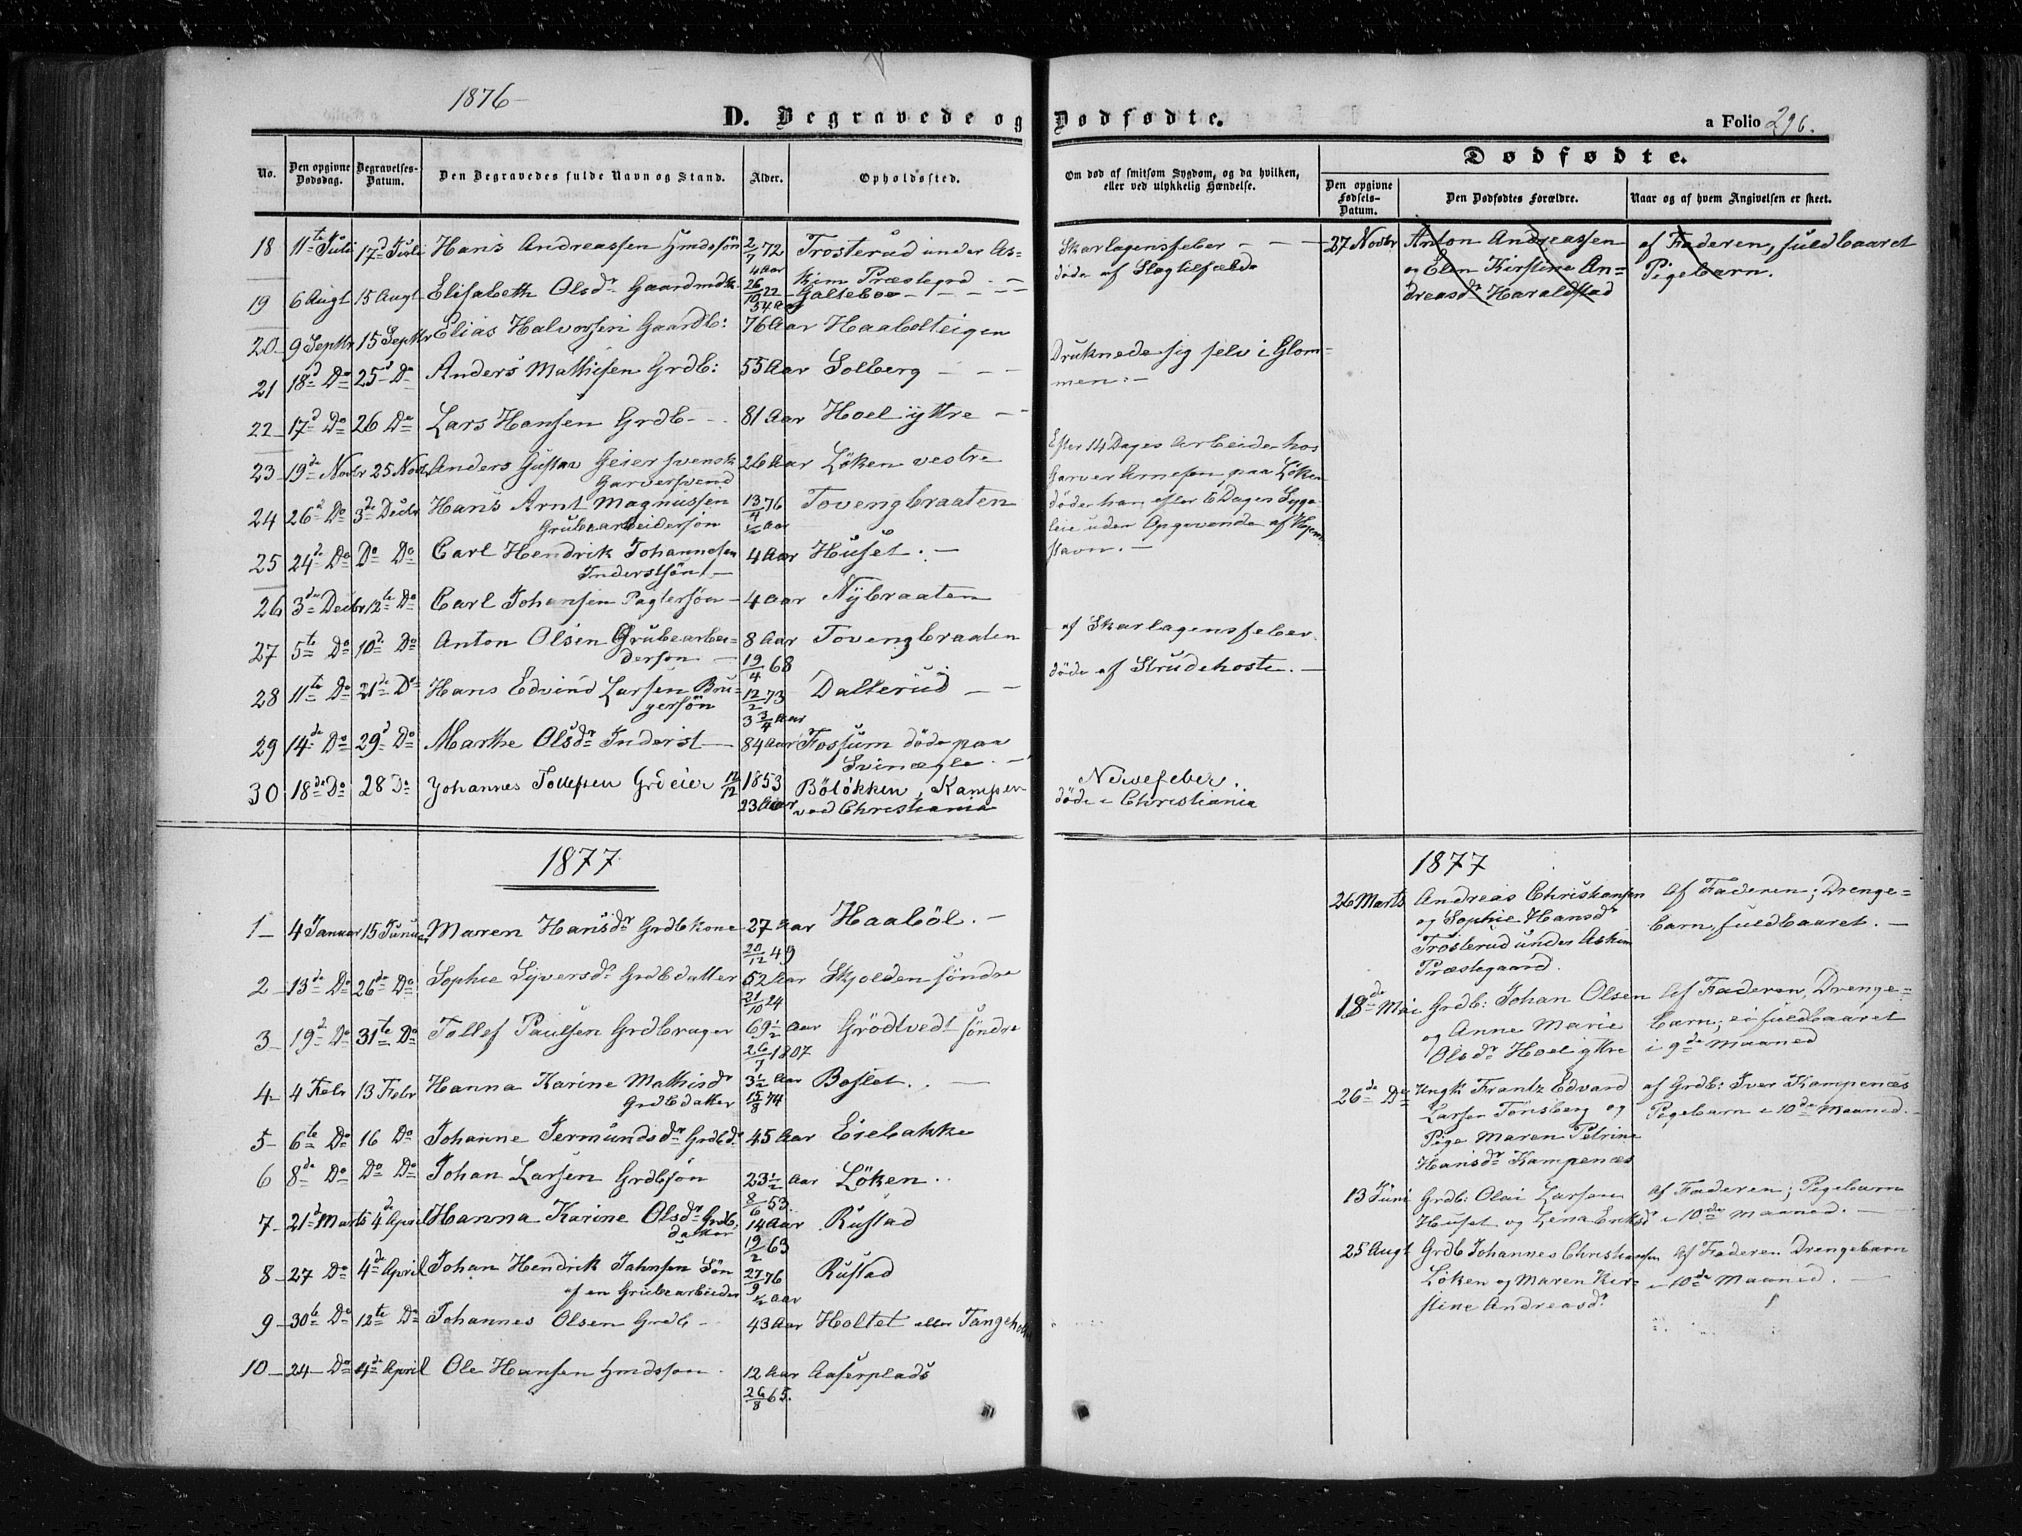 1876
D. Begravede og Dødfødte.
a Folio 296.
No.
Den opgivne Dødsdag.
Begravelses-Datum.
Den Begravedes fulde Navn og Stand.
Alder.
Opholdssted.
Om død af smitsom Sygdom, og da hvilken, eller ved ulykkelig Hændelse.
Dødfødte.
Den opgivne Fødsels-Datum.
Den Dødfødtes Forældre.
Naar og af hvem Angivelsen er skeet.
18 11te Juli 17d Juli Hans Andreassen Hmdssøn 2/7 72 4 Aar Trosterud under As-
kim Præstegrd Skarlagensfeber
19 6 Augt 15 Augt Elisabeth Olsdr Gaardmdk 26/10 22 54 Aar Galteboe døde af Slagtilfælde
20 9 Septbr 15 Septbr Elias Halvorsen Gaardb: 76 Aar Haabolteigen
21 18d Do 25d Do Anders Mathisen Grdb: 55 Aar Solberg Druknede sig selv i Glom-
men.
22 17d Do 26 Do Lars Hansen Grdb 81 Aar Hoel yttre
23 19de Novbr 25 Novbr Anders Gustav Geier svensk
Garversvend 26 Aar Löken vestre
Efter 14 Dages Arbeide hos
Garver Arnesen paa Löken
døde han efter 6 Dages Syge-
leie uden Opgivende af Hjem-
stavn.
24 26d Do 3de Decbr Hans Arnt Magnussen
Grubearbeidersøn 13/4 76 1/2 Aar Tovengbraaten
25 24de Do Do Do Carl Hendrik Johannesen
Inderstsøn 4 Aar Huset.
26 3de Decbr 12te Do Carl Johansen Pagtersøn 4 Aar Nybraaten
27 5te Do 10de Do Anton Olsen Grubearbei-
dersøn 8 Aar 19/4 68 Tovengbraaten af Skarlagensfeber.
28 11te Do 21de Do Hans Edvind Larsen Bru-
gersøn 12/2 73 3 3/4 Aar Dalterud døde af Strubehoste.
29 14de Do 29d Do Marthe Olsdr Inderst 84 Aar Fossum døde paa
Svinægle.
30 18de Do 28 Do Johannes Tollefsen Grdeier 12/12 1853 23 Aar Bölökken, Kampen
ved Christiania Nervefeber.
døde i Christiania
27 Novbr Anton Andreassen
og Elen Kirstine An-
dreasdr Haraldstad
af Faderen, fuldbaaret
Pigebarn.
1877
1 4 Januar 15 Januar Maren Hansdr Grdbkone 27 Aar 20/12 49 Haaböl.
2 13de Do 26de Do Sophie Syversdr Grdbdatter 52 Aar 21/10 24 Skjolden søndre
3 19d Do 31te Do Tollef Paulsen Grdbruger 69 1/2 Aar 26/7 1807 Grödtvedt søndre
4 4 Febr 13 Febr Hanna Karine Mathisdr
Grdbdatter 3 1/2 Aar 15/8 74 Boslet.
5 6te Do 16 Do Johanne Jermundsdr Grdbd. 45 Aar Eiebakke
6 8de Do Do Do Johan Larsen Grdbsøn 23 1/2 Aar 8/6 53. Löken.
7 21d Marts 4de April Hanna Karine Olsdr Grdb.
datter 14 Aar 19/2 63 Rustad
8 27 Do 4de April Johan Hendrik Jahnsen Søn
af en Grubearbeider 27/9 76 1/2 Aar Rustad
9 30te Do 12te Do Johannes Olsen Grdb 43 Aar Holtet eller
10 24 Do 4de April Ole Hansen Hmdssøn 12 Aar 26/8 65. Aaserplads
1877
26 Marts Andreas Christiansen
og Sophie Hansdr
Trosterud under Askim
Præstegaard.
af Faderen; Drenge-
barn, fuldbaaret.
18de Mai Grdb: Johan Olsen
og Anne Marie
Olsdr Hoel yttre
Af Faderen, Drenge-
barn; ei fuldbaaret
i 9de Maaned
26de Do Ungk. Frantz Edvard
Larsen Tönsberg og
Pige Maren Petrine
Hansdr Kampenæs
af Grdb: Iver Kampenæs
Pigebarn i 10de Maaned.
13 Juni Grdb: Olai Larsen
Huset og Lena Eriksdr
af Faderen; Pigebarn
i 10de Maaned.
25 Augt Grdb Johannes Christiansen
Löken og Maren Kir-
stine Andreasdr
af Faderen Drengebarn
i 10de Maaned.